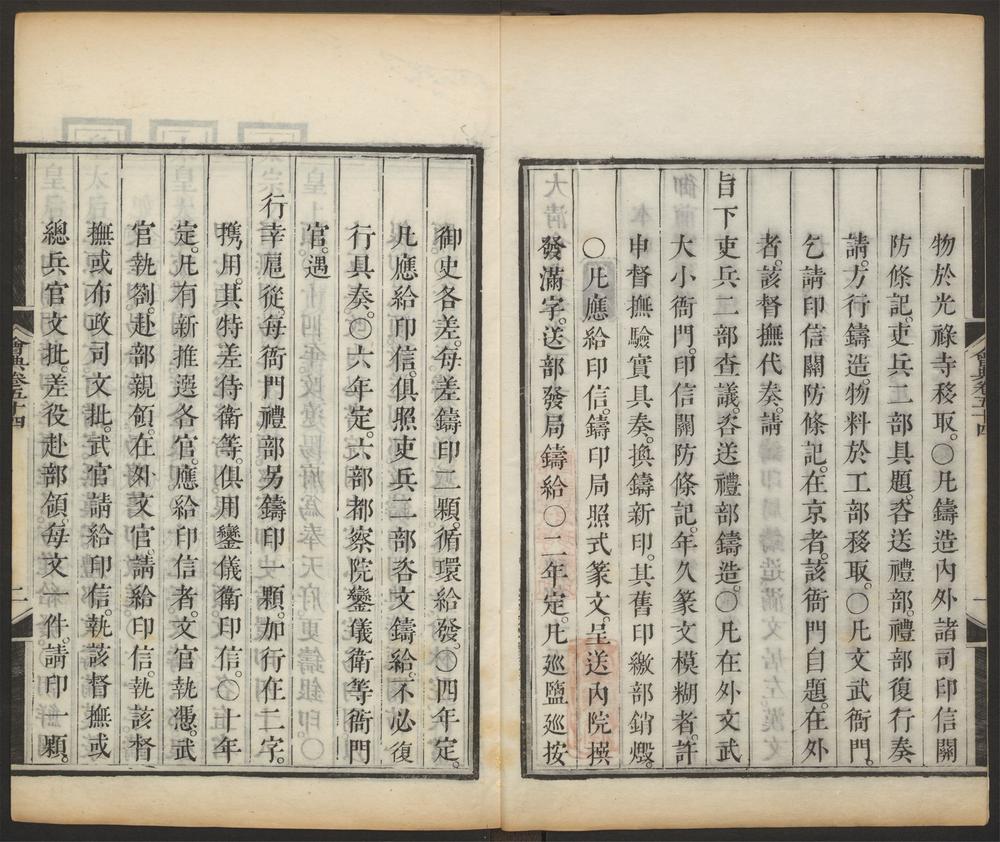 物於光祿寺移取。○凡鑄造內外諸司印信關
防條記。吏兵二部具題。咨送禮部。禮部復行奏
請。方行鑄造。物料於工部移取。○凡文武衙門。
乞請印信關防條記。在京者。該衙門自題。在外
者。該督撫代奏。請
旨下吏兵二部查議。咨送禮部鑄造。○凡在外文武
大小衙門。印信關防條記。年久篆文模糊者。許
申督撫驗實具奏。換鑄新印。其舊印繳部銷燬。
○凡應給印信。鑄印局照式篆文。呈送內院撰
發滿字。送部發局鑄給○二年定。凡巡鹽巡按
會典卷五十四
一
御史各差。每差鑄印二顆。循環給發。○四年定。
凡應給印信。俱照吏兵二部咨文鑄給。不必復
行具奏。○六年定。六部都察院鑾儀衛等衙門
官。遇
行幸扈從。每衙門禮部另鑄印一顆。加行在二字。
攜用。其特差侍衛等。俱用鑾儀衛印信。○十年
定。凡有新推選各官。應給印信者。文官執憑。武
官執劄。赴部親領。在外文官。請給印信。執該督
撫或布政司文批。武官請給印信。執該督撫或
總兵官文批。差役赴部領。每文一件。請印一顆。
會典卷五十四
二